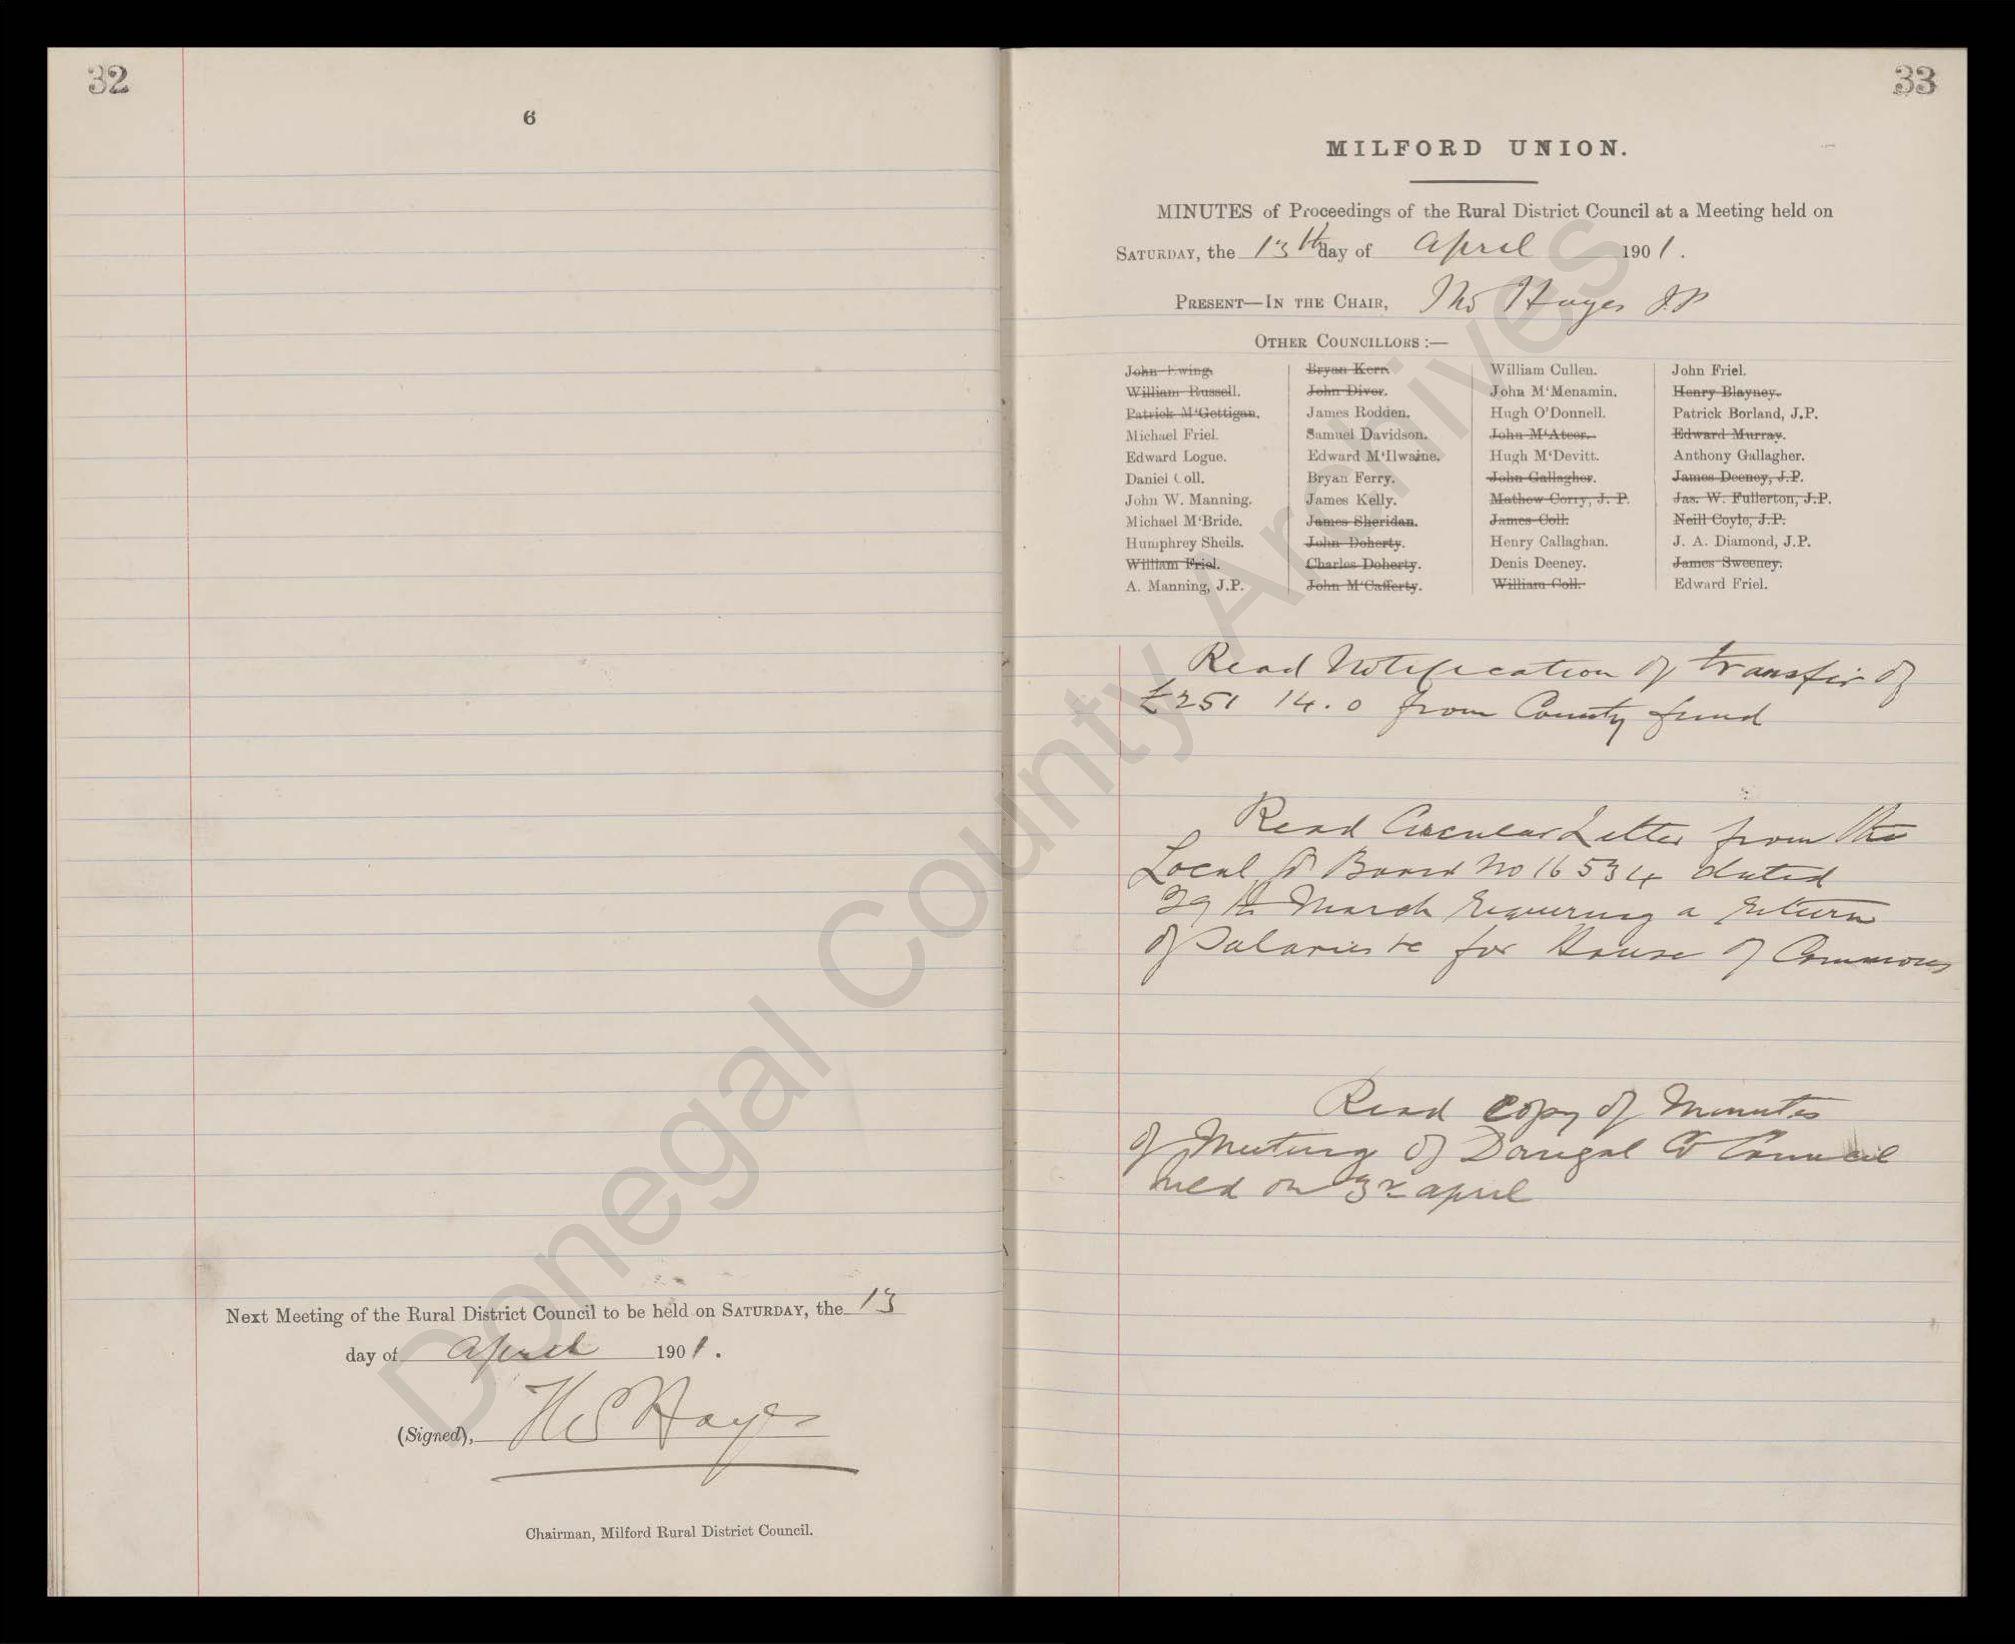 32
6
Next Meeting of the Rural District Council to be held on SATURDAY, the 13
day of April 1901.
(Signed), Hayes
Chairman, Milford Rural District Council.
33
MILFORD UNION.
MINUTES of Proceedings of the Rural District Council at a Meeting held on
SATURDAY, the 13th day of April 1901.
PRESENT—IN THE CHAIR, Thos Hayes J.P
OTHER COUNCILLORS :—
John Ewing.
William Russell.
Patrick M‘Gettigan.
Michael Friel.
Edward Logue.
Daniel Coll.
John W. Manning.
Michael M‘Bride.
Humphrey Sheils.
William Friel.
A. Manning, J.P.
Bryan Kerr.
John Diver.
James Rodden.
Samuel Davidson.
Edward M‘Ilwaine.
Bryan Ferry.
James Kelly.
James Sheridan.
John Doherty.
Charles Doherty.
John M‘Cafferty.
William Cullen.
John M‘Menamin.
Hugh O’Donnell.
John M‘Ateer.
Hugh M‘Devitt.
John Gallagher.
Mathew Corry, J. P.
James Coll.
Henry Callaghan.
Denis Deeney.
William Coll.
John Friel.
Henry Blayney.
Patrick Borland, J.P.
Edward Murray.
Anthony Gallagher.
James Deeney, J.P.
Jas. W. Fullerton, J.P.
Neill Coyle, J.P.
J. A. Diamond, J.P.
James Sweeney.
Edward Friel.
Read Notification of transfer of
£251 14.0 from County fund
Read Circular Letter from the
Local G Board No 16534 dated
29th March requiring a return
of Salaries &c for House of Commons
Read copy of Minutes
of Meeting of Donegal Co Council
held on 3rd April
Donegal County Archives